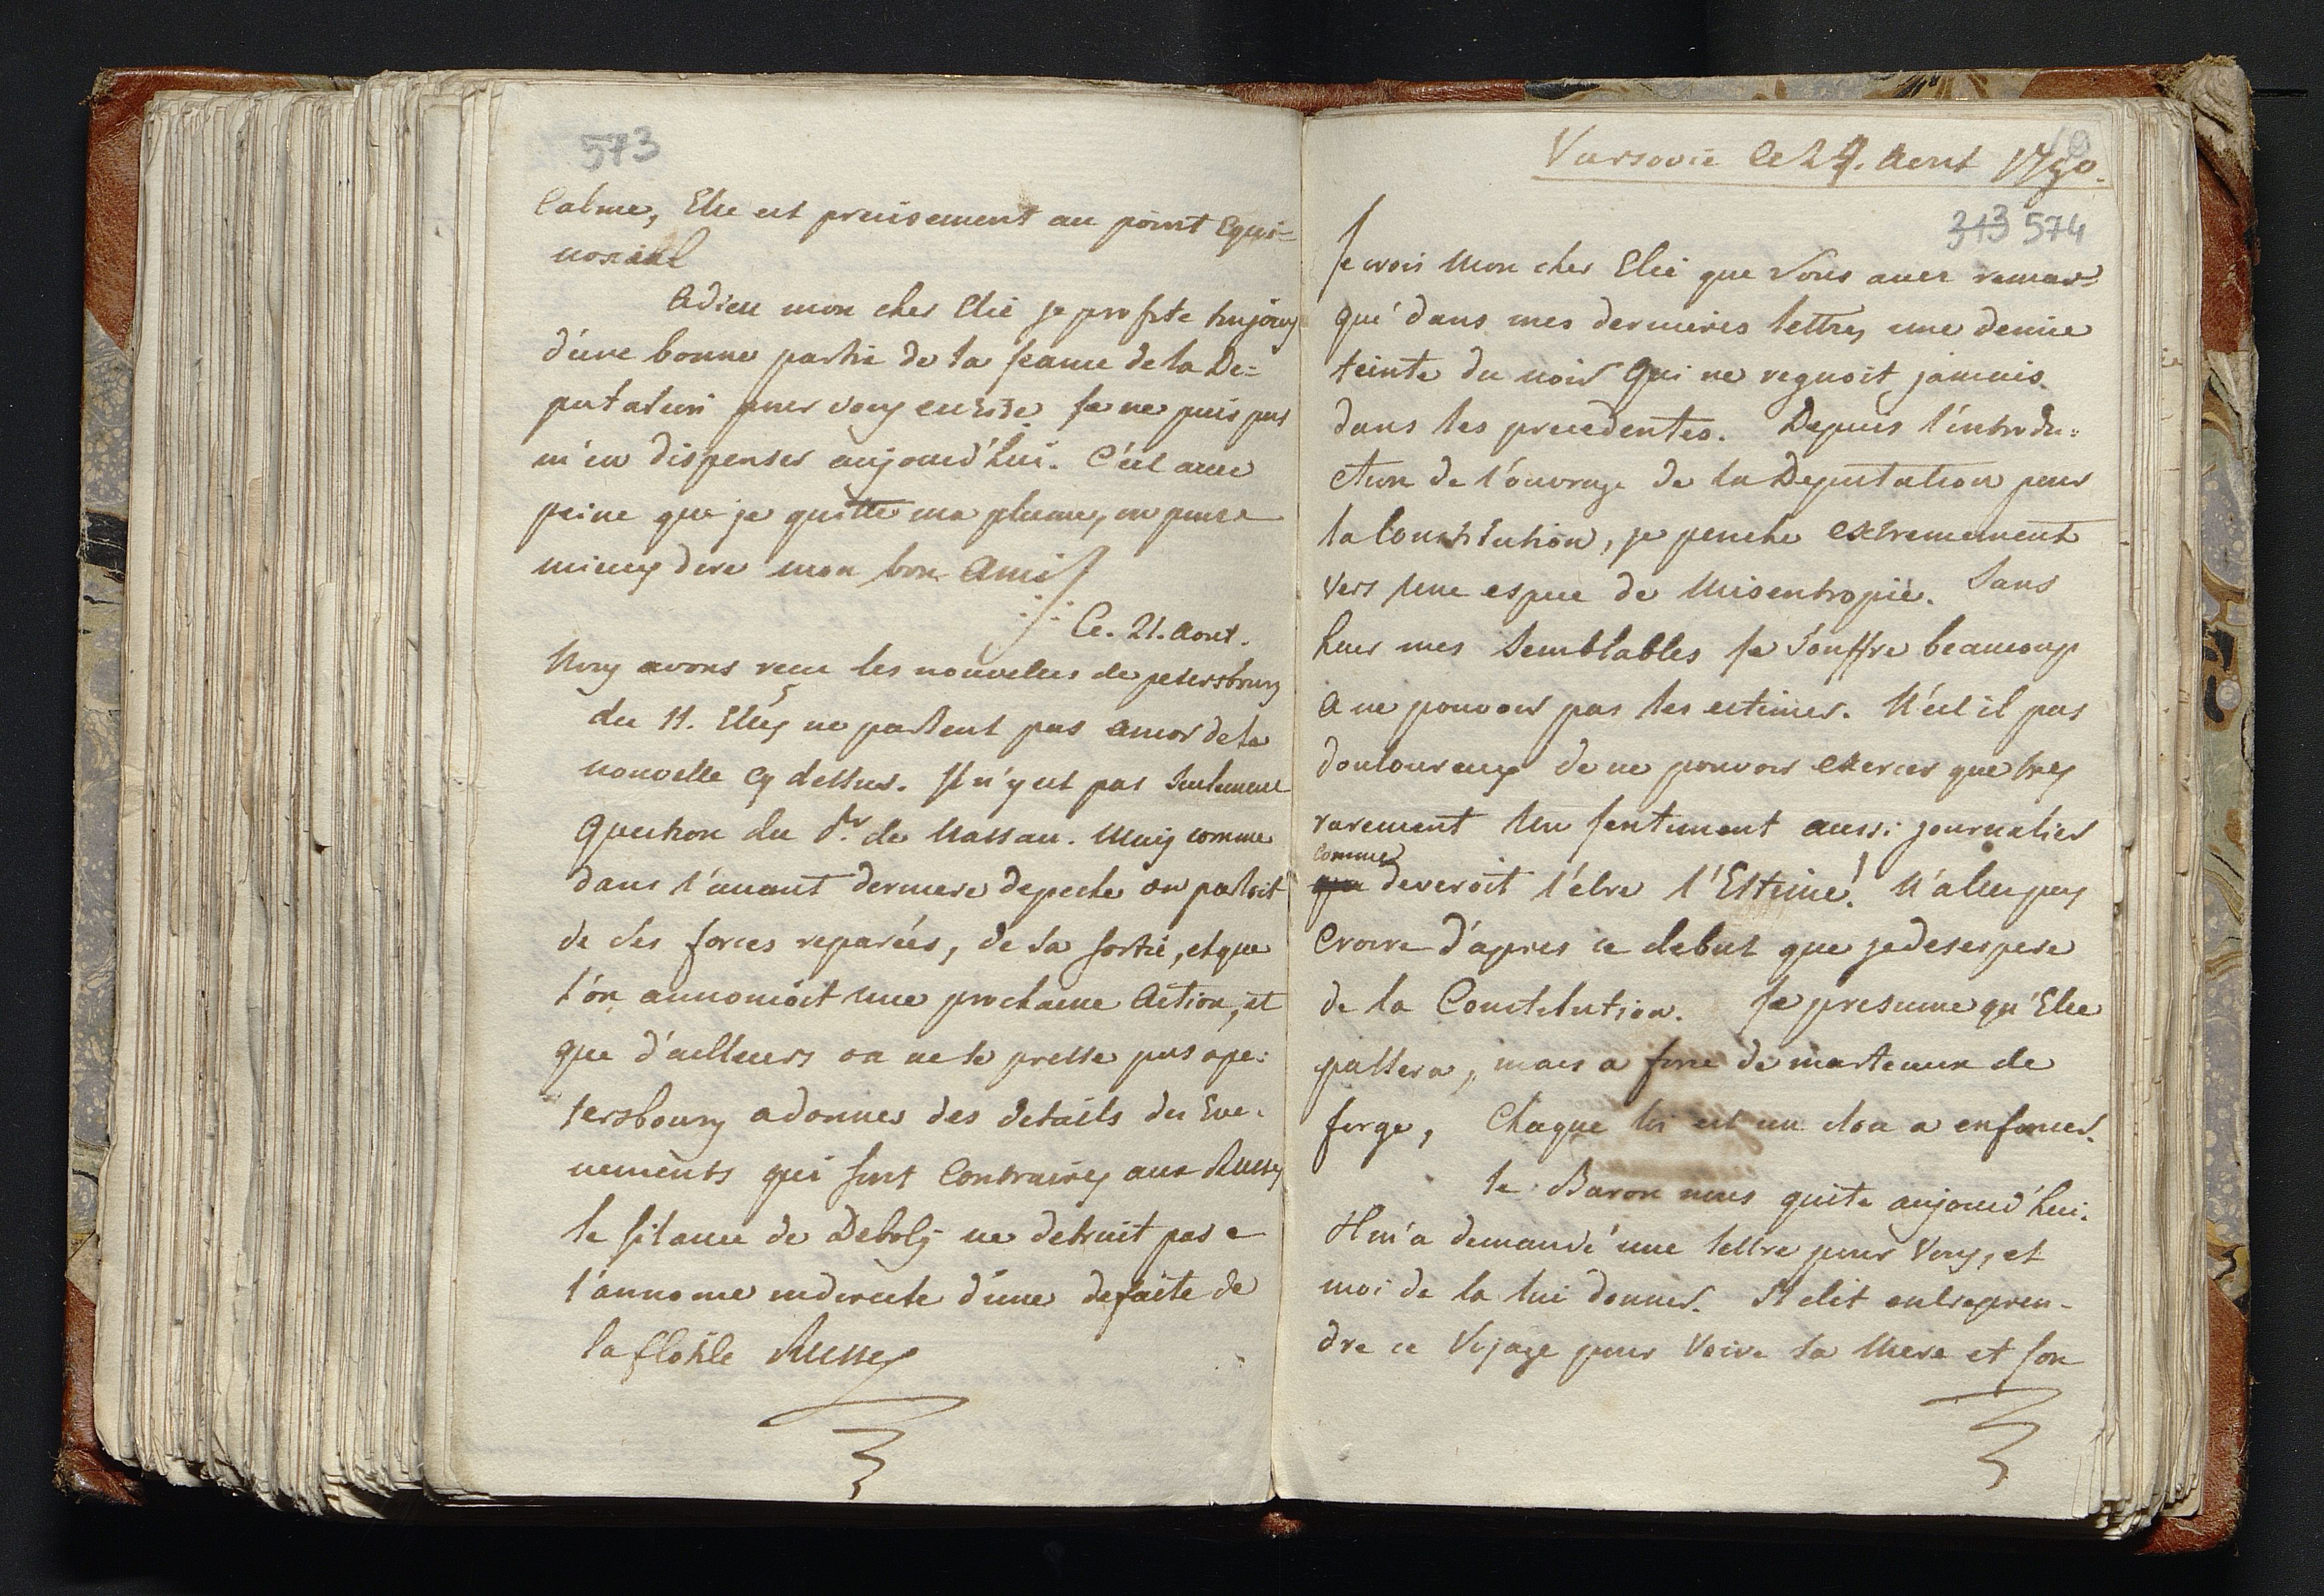 573
Calme, Elle est precisement au point Equi=
noxial
Adieu mon cher Elie je profite toujours
d'une bonne partie de la seance de la De=
putation pour vous ecrire. Je ne puis pas
m'en dispenser aujourd'hui. C'est avec
peine que je quitte ma plume, ou pour
mieux dire mon bon Ami
Ce. 21. Aout.
Nous avons recu les nouvelles de petersbourg
du 11. Elles ne parlent pas encor de la
nouvelle cy dessus. Il n'y est pas seulement
question du Pr. de Nassau. Mais comme
dans l'avant derniere depeche on parloit
de ses forces reparées, de sa sortie, et que
l'on annoncoit une prochaine Action, et
que d'ailleurs on ne se presse pas a pe=
tersbourg a donner des details des Eve=
nements qui sont Contraires aux Russes
le silence de Deboly ne detruit pas
l'annonce indirecte d'une defaite de
la flotile Russe
Varsovie Ce 24. Aout 1790.
313 574
Je crois Mon cher Elie que Vous avez remar=
qué dans mes dernieres lettres une demie
teinte du noir Qui ne regnoit jamais
dans les precedentes. Depuis l'introdu=
ction de l'ouvrage de la Deputation pour
la Constitution, je penche extremement
vers une espece de Misentropie. Sans
hair mes Semblables Je souffre beaucoup
a ne pouvoir pas les estimer. N'est il pas
douloureux de ne pouvoir exercer que tres
rarement Un sentiment aussi journalier
comme
que deveroit l'etre l'Estime! N'allez pas
Croire d'apres ce debut que je desespere
de la Constitution. Je presume qu'Elle
passera, mais a force de marteaux de
forge, Chaque loi est un clou a enfoncer.
le Baron nous quite aujourd'hui.
Il m'a demandé une lettre pour Vous, et
moi de la lui donner. Il dit entrepren=
dre ce Voyage pour Voire sa Mere et son